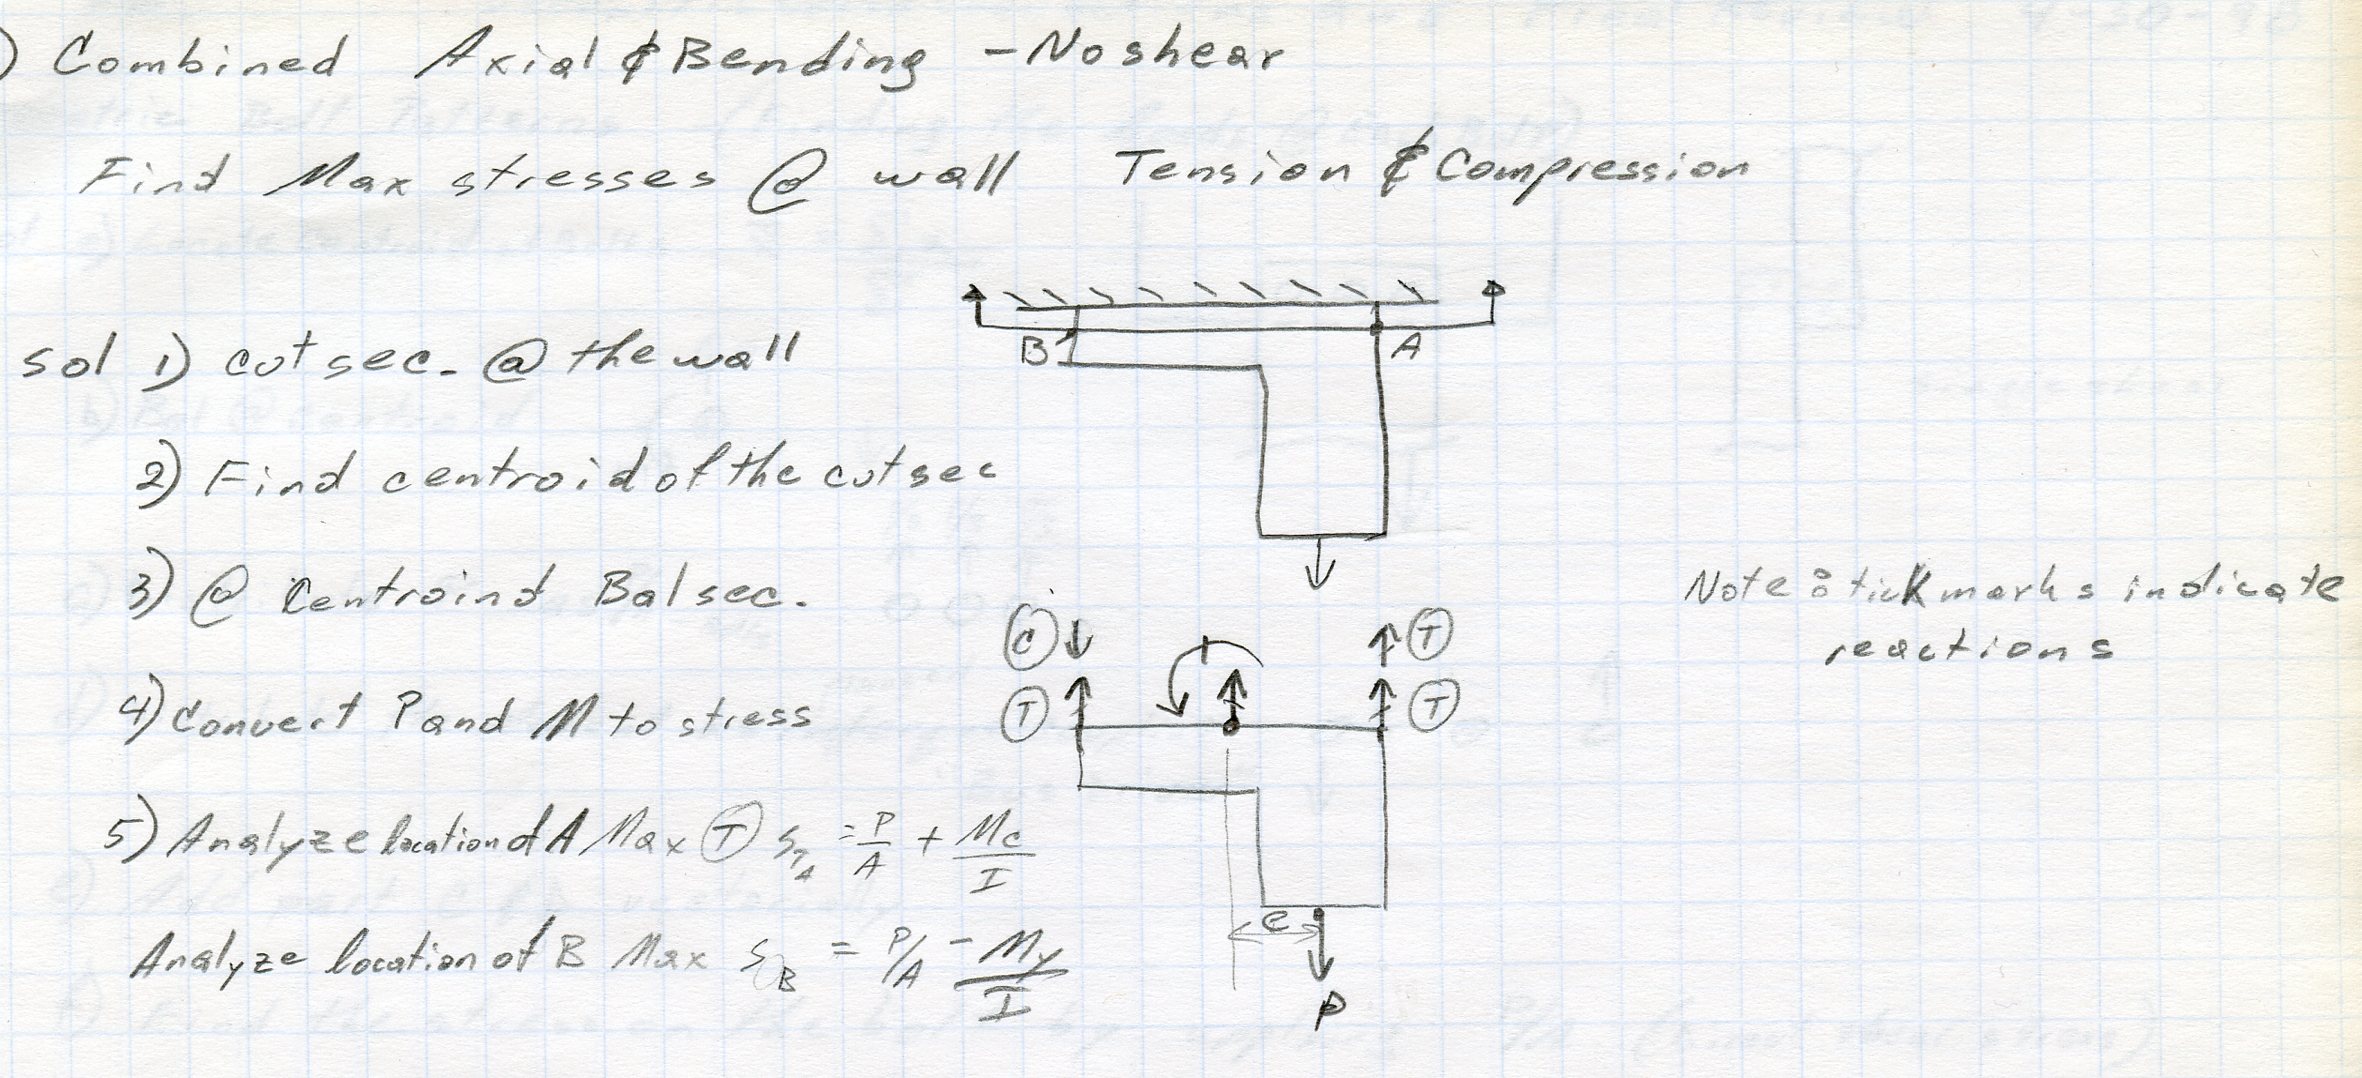 ) Combined Axial & Bending - No shear
Find Max stresses @ wall Tension & Compression
sol 1) cut sec. @ the wall
B A
2) Find centroid of the cut sec
3) @ Centroind Bal sec.
Note: tick marks indicate
reactions
C T
4) Convert P and M to stress
T T
5) Analyze location of A Max T S_TA = P/A + Mc/I
e
Analyze location of B Max S_B = P/A - My/I
P